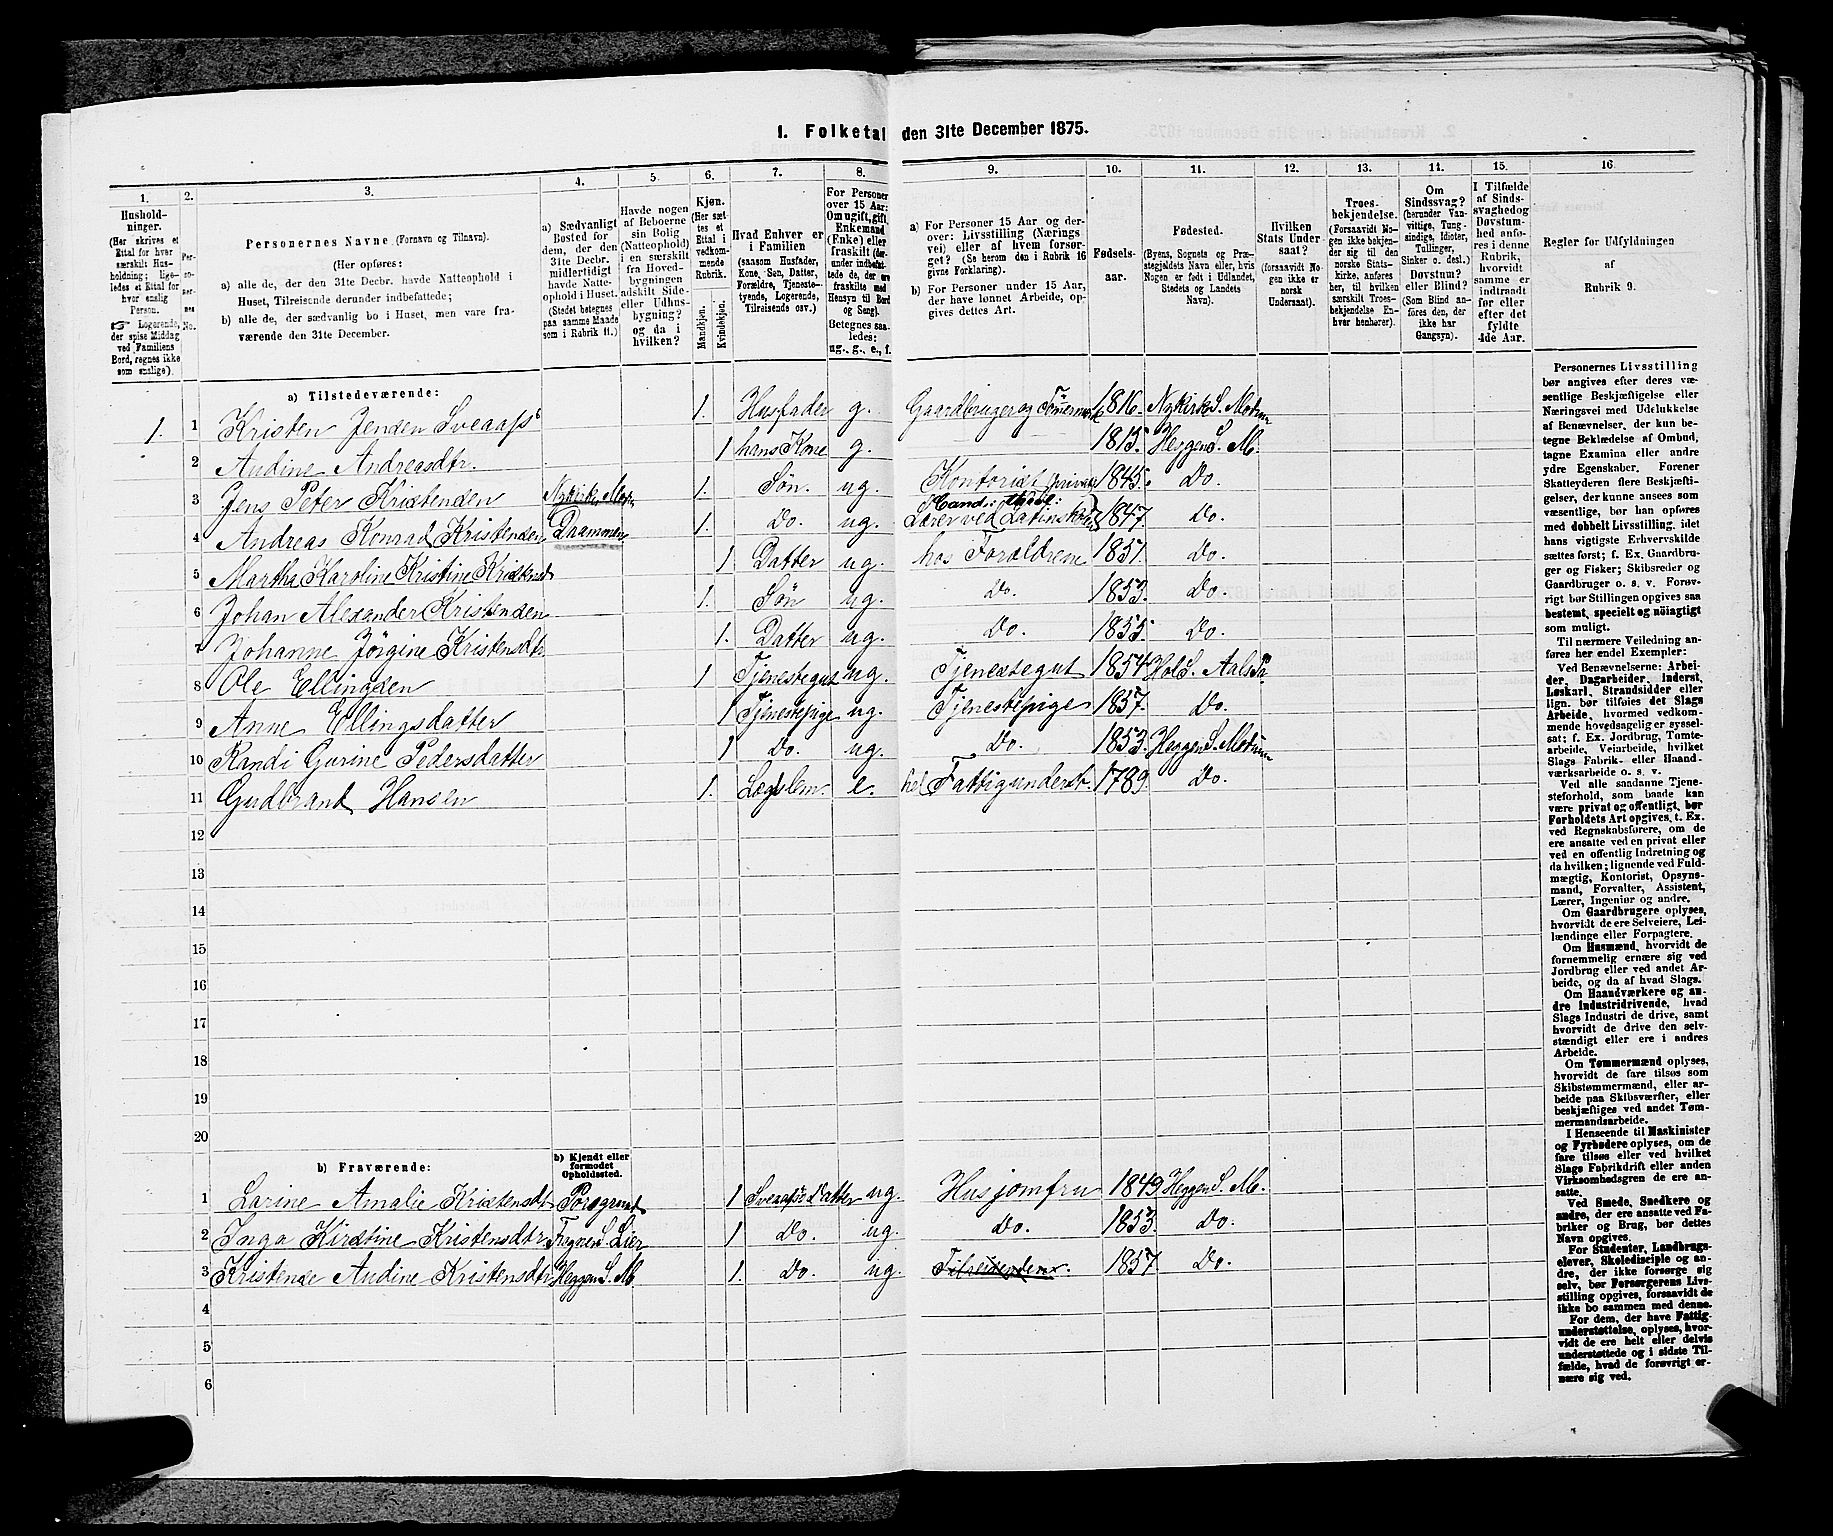 1. Folketal den 31te December 1875.
1. 2. 3. 4. 5. 6. 7. 8. 9. 10. 11. 12. 13. 14. 15. 16.
Husholdninger.
(Her skrives et
Ettal for hver
særskilt Husholdning;
ligeledes et Ettal for
hver enslig
Person.
Logerende,
der spise Middag
ved Familiens
Bord, regnes ikke
som enslige).
Personernes No.
Personernes Navne (Fornavn og Tilnavn).
(Her opføres:
a) alle de, der den 31te Decbr. havde Natteophold i
Huset, Tilreisende derunder indbefattede;
b) alle de, der sædvanlig bo i Huset, men vare fraværende
den 31te December.
a) Sædvanligt
Bosted for
dem, der den
31te Decbr.
midlertidigt
havde Natteophold
i Huset.
(Stedet betegnes
paa samme Maade
som i Rubrik 11.)
Havde nogen
af Beboerne
sin Bolig
(Natteophold)
i en særskilt
fra Hovedbygningen
adskilt Side-
eller Udhusbygning?
og da i
hvilken?
Kjøn.
(Her sættes et
Ettal i
vedkommende
Rubrik.
Mandkjøn.
Kvindekjøn.
Hvad Enhver er
i Familien
(saasom Husfader,
Kone, Søn, Datter,
Forældre, Tjenestetyende,
Logerende,
Tilreisende osv.)
For Personer
over 15 Aar:
Om ugift, gift,
Enkemand
(Enke) eller
fraskilt (derunder
indbefattede
de, der ere
fraskilte med
Hensyn til Bord
og Seng).
Betegnes saaledes:
ug., g., e., f.
a) For Personer 15 Aar og derover:
Livsstilling (Næringsvei)
eller af hvem forsørget?
(Se herom den i Rubrik 16
givne Forklaring).
b) For Personer under 15 Aar,
der have lønnet Arbeide, opgives
dettes Art.
Fødselsaar.
Fødested.
(Byens, Sognets og Præstegjeldets
Navn eller, hvis
Nogen er født i Udlandet,
Stedets og Landets
Navn).
Hvilken
Stats Undersaat?
(forsaavidt Nogen
ikke er
norsk
Undersaat).
Troesbekjendelse.
(Forsaavidt Nogen
ikke bekjender
sig til den
norske Statskirke,
anføres
her, til hvilken
særskilt Troesbekjendelse
Enhver
henhører).
Om
Sindssvag?
(herunder Vanvittige,
Tungsindige,
Idioter,
Tullinger,
Sinker o. desl.)
Døvstum?
eller Blind?
(Som Blind anføres
den, der
ikke har
Gangsyn).
I Tilfælde
af Sindssvaghed og
Døvstumhed
anføres
i denne
Rubrik,
hvorvidt
samme er
indtraadt
før eller
efter det
fyldte
4de Aar.
Regler for Udfyldningen
af
Rubrik 9.
a) Tilstedeværende:
1. 1 Kristen Jensen Sveaas 1. Husfader g. Gaardbruger og 1816. Nykirke S. Modum
2 Andine Andreasdtr. 1 hans Kone g. 1815. Heggen S. M.
3 Jens Peter Kristensen Nykirke, Modum 1. Søn. ug. Kontorist privat 1845. Do.
4 Andreas Konrad Kristensen Drammen 1. Do. ug. Cand: theol: Lærer ved Latinskole 1847. Do.
5 Martha Karoline Kristine Kristensd 1 Datter ug. hos Forældrene 1851. Do.
6 Johan Alexander Kristensen 1. Søn ug. Do. 1853. Do.
7 Johanne Jørgine Kristensdtr 1. Datter ug. Do. 1855. Do.
8 Ole Ellingsen 1 Tjenestegut ug. Tjenestegut 1854 Hol S. Aals Pr.
9 Anne Ellingsdatter 1 Tjenestepige ug. Tjenestepige 1857. Do.
10 Randi Gurine Pedersdatter 1 Do. ug. Do. 1853. Heggen S. Modum
11 Gudbrand Hansen 1. Lægslem. e. hel Fattigunderst. 1789. Do.
12
13
14
15
16
17
18
19
20
b) Fraværende:
b) Kjendt eller
formodet
Opholdssted.
1 Larine Amalie Kristensdt Porsgrund 1 Sveaas's Datter ug. Husjomfru 1849. Heggen S. M.
2 Inga Kirstine Kristensdtr. S. Lier 1 Do. ug. Do. 1853. Do.
3 Kristense Andine Kristensdtr Heggen S. M 1. Do. ug. 1857. Do.
4
5
6
Personernes Livsstilling
bør angives efter deres væsentlige
Beskjæftigelse eller
Næringsvei med Udelukkelse
af Benævnelser, der kun betegne
Beklædelse af Ombud,
tagne Examina eller andre
ydre Egenskaber. Forener
Skatteyderen flere Beskjæftigelser,
der kunne ansees som
væsentlige, bør han opføres
med dobbelt Livsstilling, idet
hans vigtigste Erhvervskilde
sættes først; f. Ex. Gaardbruger
og Fisker; Skibsreder og
Gaardbruger o. s. v. Forøvrigt
bør Stillingen opgives saa
bestemt, specielt og nöiagtigt
som muligt.
Til nærmere Veiledning anføres
her endel Exempler:
Ved Benævnelserne: Arbeider,
Dagarbeider, Inderst,
Løskarl, Strandsidder eller
lign. bør tilføies det Slags
Arbeide, hvormed vedkommende
hovedsagelig er sysselsat;
f. Ex. Jordbrug, Tomtearbeide,
Veiarbeide, hvilket
Slags Fabrik- eller Haandværksarbeide
o. s. v.
Ved alle saadanne Tjenesteforhold,
som baade kan
være privat og offentligt, bør
Forholdets Art opgives, t. Ex.
ved Regnskabsførere, om de
ere ansatte ved en privat eller
ved en offentlig Indretning og
da hvilken; lignende ved Fuldmægtig,
Kontorist, Opsynsmand,
Forvalter, Assistent,
Lærer, Ingeniør og andre.
Om Gaardbrugere oplyses,
hvorvidt de ere Selveiere, Leilændinge
eller Forpagtere.
Om Husmænd, hvorvidt de
fornemmelig ernære sig ved
Jordbrug eller ved andet Arbeide,
og da af hvad Slags.
Om Haandværkere og andre
Industridrivende, hvad
Slags Industri de drive, samt
hvorvidt de drive den selvstændigt
eller ere i andres
Arbeide.
Om Tømmermænd oplyses,
hvorvidt de fare tilsøs som
Skibstømmermænd, eller arbeide
paa Skibsværfter, eller
beskjæftiges ved andet Tømmermandsarbeide.
I Henseende til Maskinister
og Fyrbødere oplyses, om de
fare tilsøs eller ved hvilket
Slags Fabrikdrift eller anden
Virksomhedsgren de ere ansatte.
Ved Smede, Snedkere og
andre, der ere ansatte ved Fabriker
og Brug, bør dettes
Navn opgives.
For Studenter, Landbrugselever,
Skoledisciple og andre,
der ikke forsørge sig
selv, bør Forsørgerens Livsstilling
opgives, forsaavidt de
ikke bo sammen med denne.
For dem, der have Fattigunderstøttelse,
oplyses, hvorvidt
de ere helt eller delvis
understøttede og i sidste Tilfælde,
hvad de forøvrigt ernære
sig ved.